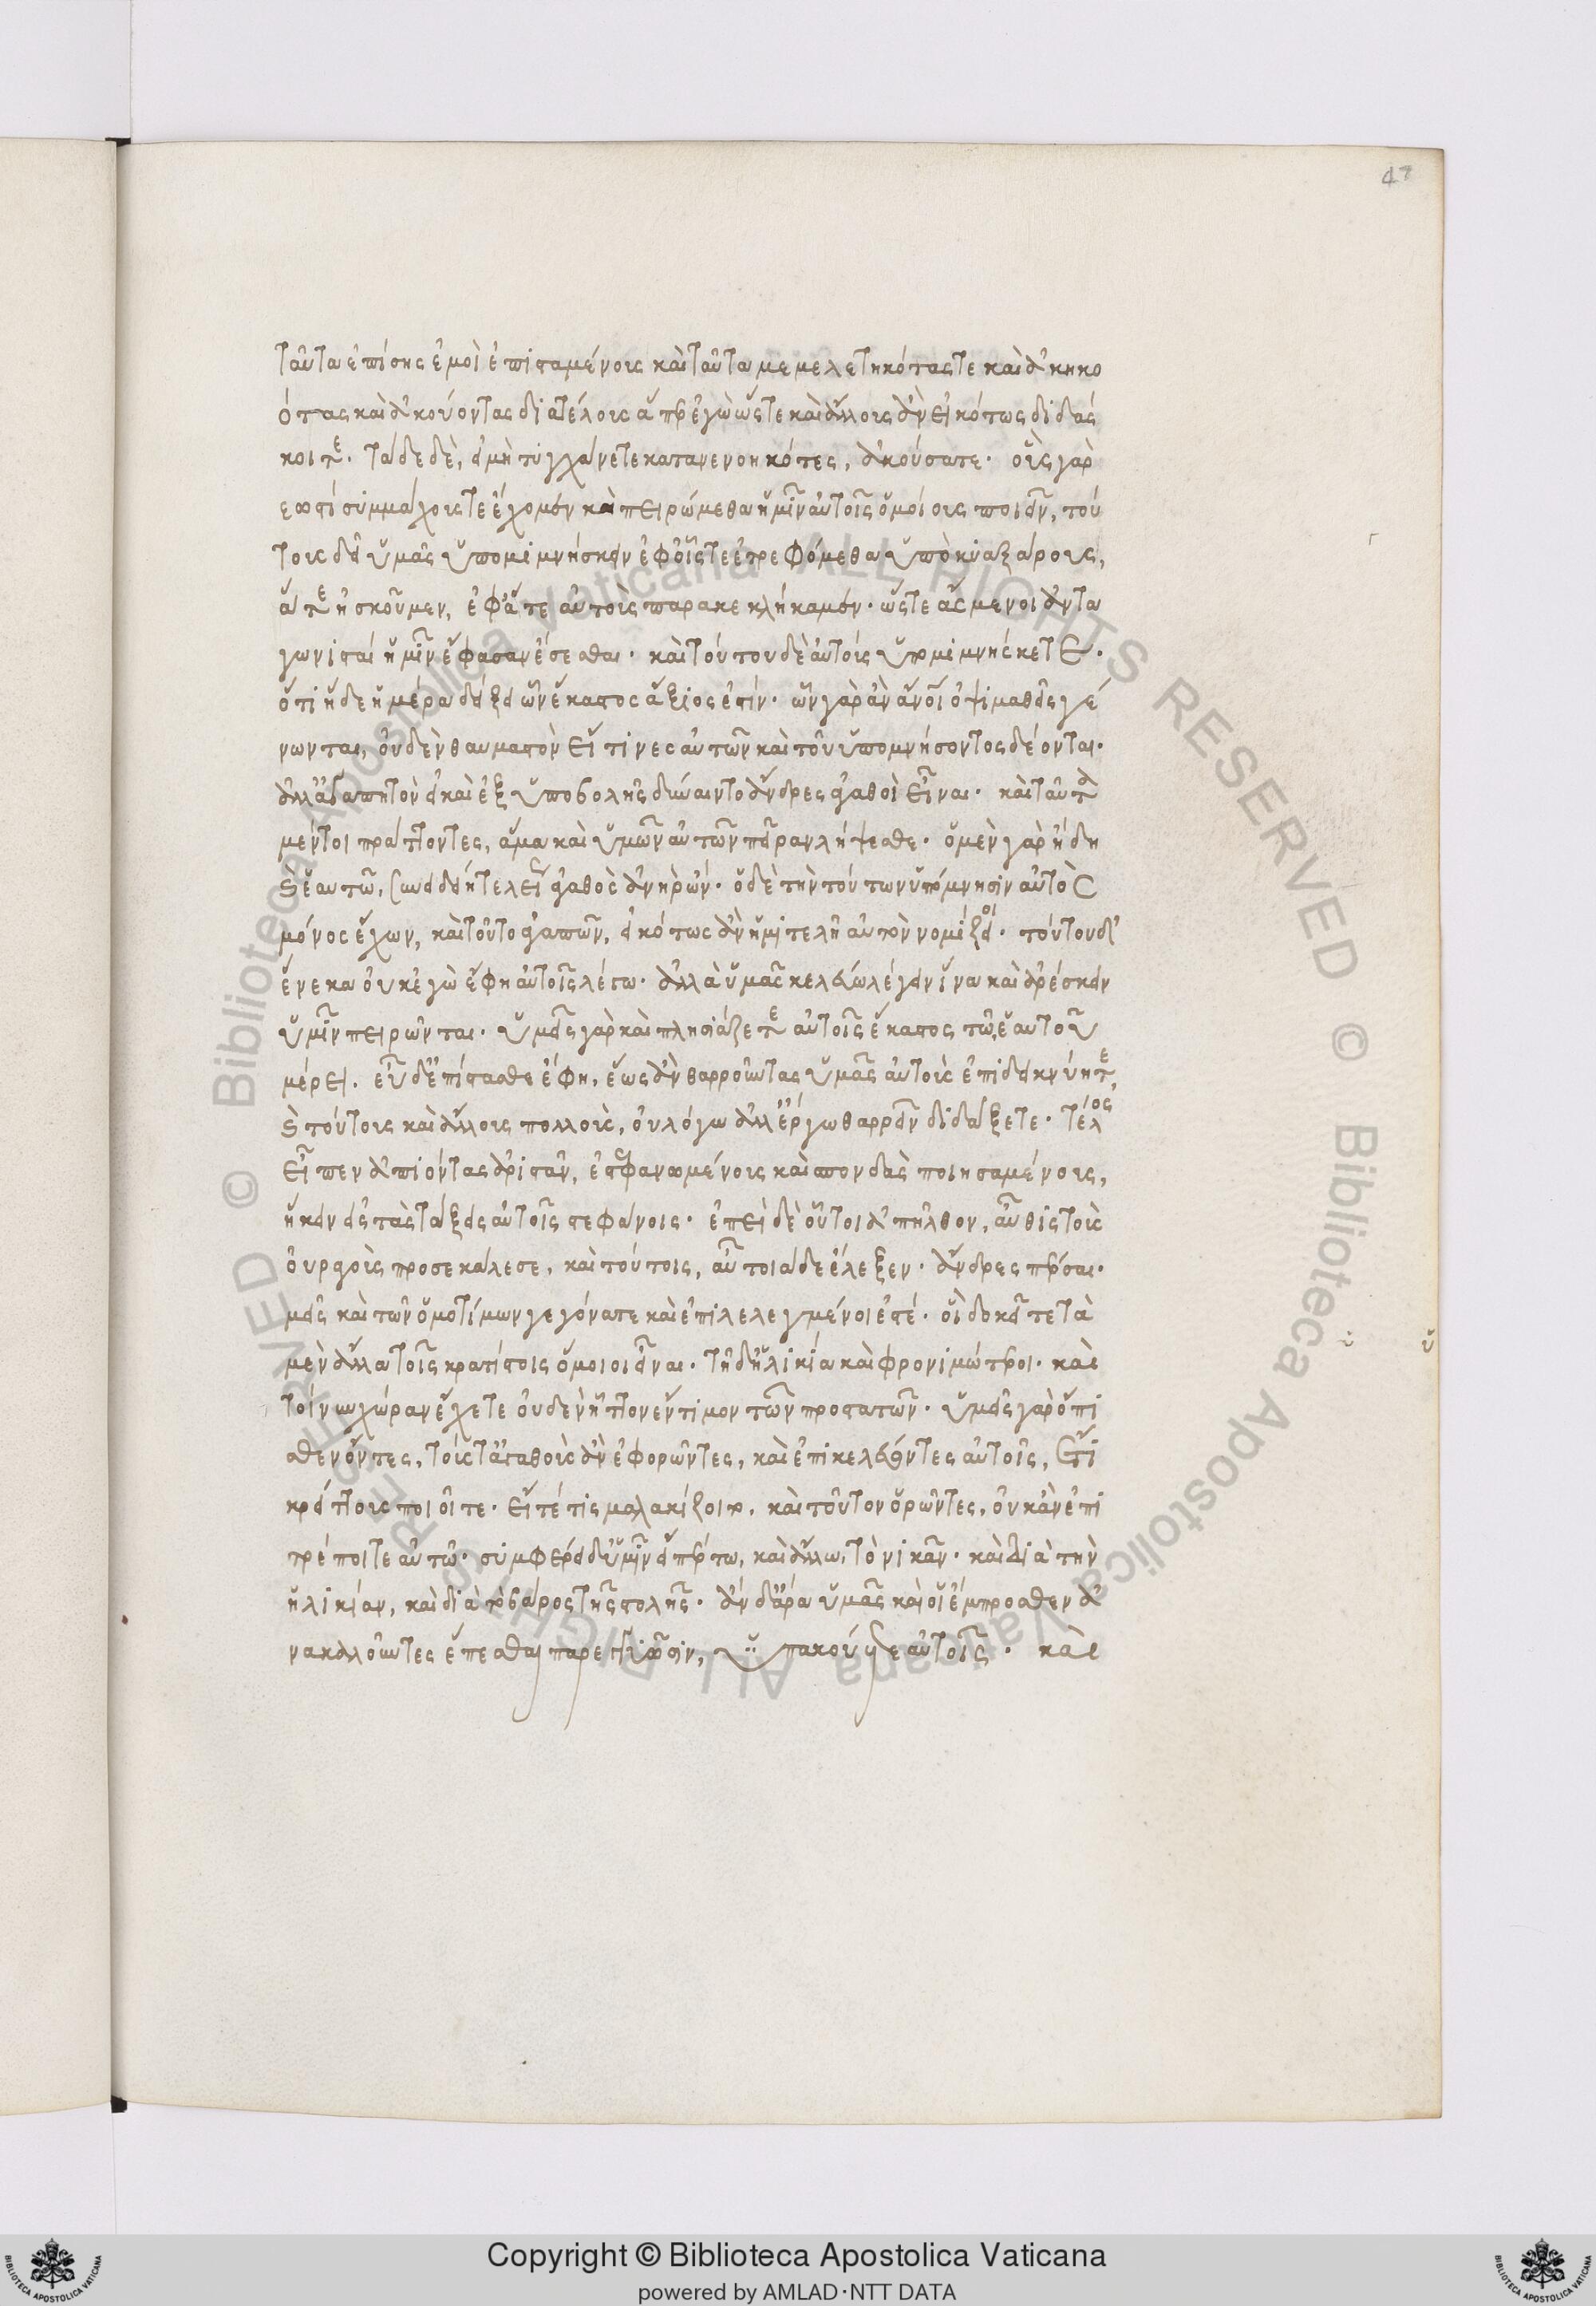 47
ταῦτα ἐπίσης ἐμοὶ ἐπισταμένους καὶ ταῦτα μεμελετηκότας τε καὶ ἀκηκο
ότας καὶ ἀκούοντας διατέλους ἅπερ ἐγὼ ὥστε καὶ ἄλλους ἂν εἰκότως διδάσ
κοιτε. τάδε δὲ, εἰ μὴ τυγχάνετε κατανενοηκότες, ἀκούσατε. οὓς γὰρ
νεωστί συμμάχους τε ἔχομεν καὶ πειρώμεθα ἡμῖν αὐτοῖς ὁμοίους ποιεῖν, τού
τους δεῖ ὑμᾶς ὑπομιμνήσκειν ἐφ' οἷς τε ἐτρεφόμεθα ὑπὸ κυαξάρους,
ἅ τε ἠσκοῦμεν, ἐφ' ἅ τε αὐτοὺς παρακεκλήκαμεν. ὥστε ἄσμενοι ἀντα
γωνισταί ἡμῖν ἔφασαν ἔσεσθαι. καὶ τούτου δὲ αὐτοὺς ὑπομιμνήσκετε.
ὅτι ἥδε ἡμέρα δείξει ὧν ἕκαστος ἄξιός ἐστίν. ὧν γὰρ ἂν ἄνοι ὀψιμαθεῖς γέ
νωνται, οὐδὲν θαυμαστὸν εἴ τινες αὐτῶν καὶ τοῦ ὑπομνήσοντος δέονται.
ἀλλ' ἀγαπητὸν εἰ καὶ ἐξ ὑποβολῆς δύναιντο ἄνδρες ἀγαθοὶ εἶναι. καὶ ταῦτα
μέντοι πράττοντες, ἅμα καὶ ὑμῶν αὐτῶν πεῖραν λήψεσθε. ὁ μὲν γὰρ ἤδη
ἑαυτῶ, συνειδείη τελείως ἀγαθὸς ἀνὴρ ὤν. ὁ δὲ τὴν τούτων ὑπόμνησιν αὐτὸς
μόνος ἔχων, καὶ τοῦτο ἀγαπῶν, εἰκότως ἂν ἡμιτελῆ αὐτὸν νομίζοι. τούτου δ'
ἕνεκα οὐκ ἐγὼ ἔφη αὐτοῖς λέγω. ἀλλὰ ὑμᾶς κελεύω λέγειν ἵνα καὶ ἀρέσκειν
ὑμῖν πειρῶνται. ὑμεῖς γὰρ καὶ πλησιάζετε αὐτοῖς ἕκαστος τῶ ἑαυτοῦ
μέρει. εὖ δ' ἐπίστασθε ἔφη, ἕως ἂν θαρροῦντας ὑμᾶς αὐτοὺς ἐπιδεικνύητε,
τούτους καὶ ἄλλους πολλοὺς, οὐ λόγω ἀλλ' ἔργω θαρρεῖν διδάξετε. τέλος
εἶπεν ἀπιόντας ἀριστᾶν, ἐστεφανωμένους καὶ σπονδὰς ποιησαμένους,
ἥκειν εἰς τὰς τάξεις αὐτοῖς στεφάνοις. ἐπεὶ δὲ οὗτοι ἀπῆλθον, αὖθις τοὺς
οὐραγοὺς προσεκάλεσε, καὶ τούτοις, αὖ τοιάδε ἔλεξεν. ἄνδρες πέρσαι.
μεῖς καὶ τῶν ὁμοτίμων γεγόνατε καὶ ἐπιλελεγμένοι ἐστέ. οἳ δοκεῖτε τὰ
μὲν ἄλλα τοῖς κρατίστοις ὅμοιοι εἶναι. τῇ δ' ἡλικία καὶ φρονιμώτεροι. καὶ
τοίνυν χώραν ἔχετε οὐδὲν ἧττον ἔντιμον τῶν προστατῶν. ὑμεῖς γὰρ ὄπι
σθεν ὄντες, τοὺς τ' ἀγαθοὺς ἂν ἐφορῶντες, καὶ ἐπικελεύοντες αὐτοῖς, ἔτι
κρείττους ποιοῖτε. εἴ τέ τις μαλακίζοιτο, καὶ τοῦτον ὁρῶντες, οὐκ ἂν ἐπι
τρέποιτε αὐτῶ. συμφέρει δ' ὑμῖν εἴπερ τω, καὶ ἄλλω, τὸ νικᾶν. καὶ διὰ τὴν
ἡλικίαν, καὶ διὰ τὸ βάρος τῆς στολῆς. ἂν δ' ἄρα ὑμᾶς καὶ οἱ ἔμπροσθεν ἀ
νακαλοῦντες ἕπεσθαι παρεγγυῶσιν, ὑπακούετε αὐτοῖς. καὶ
© Biblioteca Apostolica Vaticana ALL RIGHTS RESERVED
© Biblioteca Apostolica Vaticana ALL RIGHTS RESERVED
Copyright © Biblioteca Apostolica Vaticana
powered by AMLAD·NTT DATA